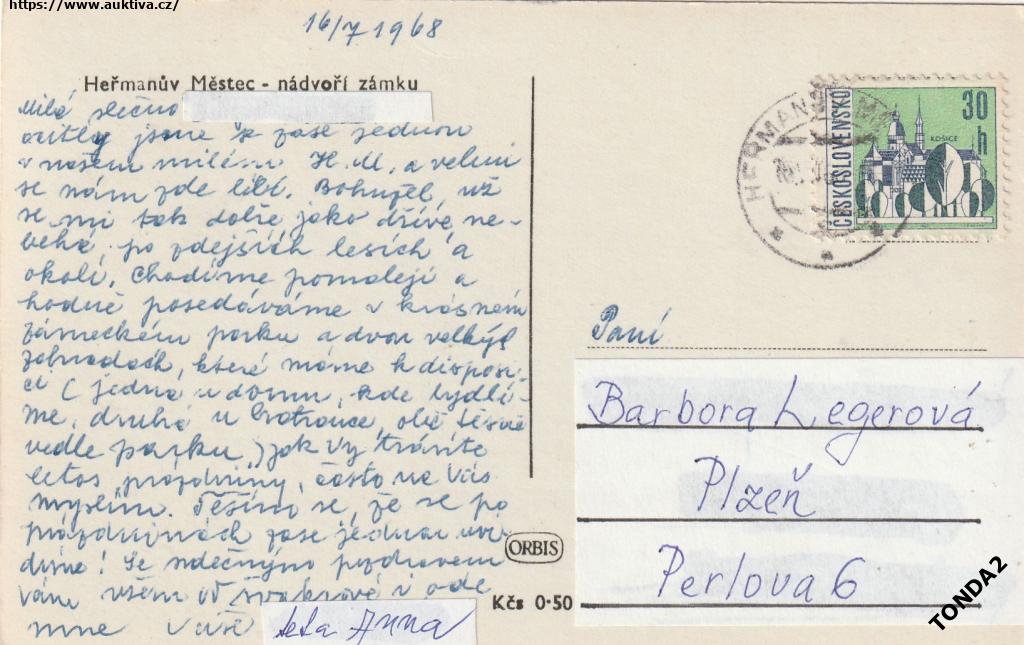 https://www.auktiva.cz/
16/7 1968
Heřmanův Městec - nádvoří zámku
Milá slečno
ocitly jsme se zase jednou
v našem milém H.M. a velmi
se nám zde líbí. Bohužel, už
se mi tak dobře jako dříve ne-
běhá, po zdejších lesích a
okolí. Chodíme pomaleji a
hodně posedáváme v krásném
zámeckém parku a dvou velkých
zahradách, které máme k disposi-
ci (jedna u domu, kde bydlí-
me, druhá u, obě těsně
vedle parku.) Jak Vy trávíte
letos prázdniny, často na Vás
myslím. Těším se, že se po
prázdninách zase jednou uvi-
díme! Se srdečným pozdravem
Vám všem od švakrové i ode
mne Vaše teta Anna
HEŘMANŮV MĚ
ČESKOSLOVENSKO
30 h
KOŠICE
Paní
Barbora Legerová
Plzeň
Perlova 6
ORBIS
Kčs 0·50
TONDA2